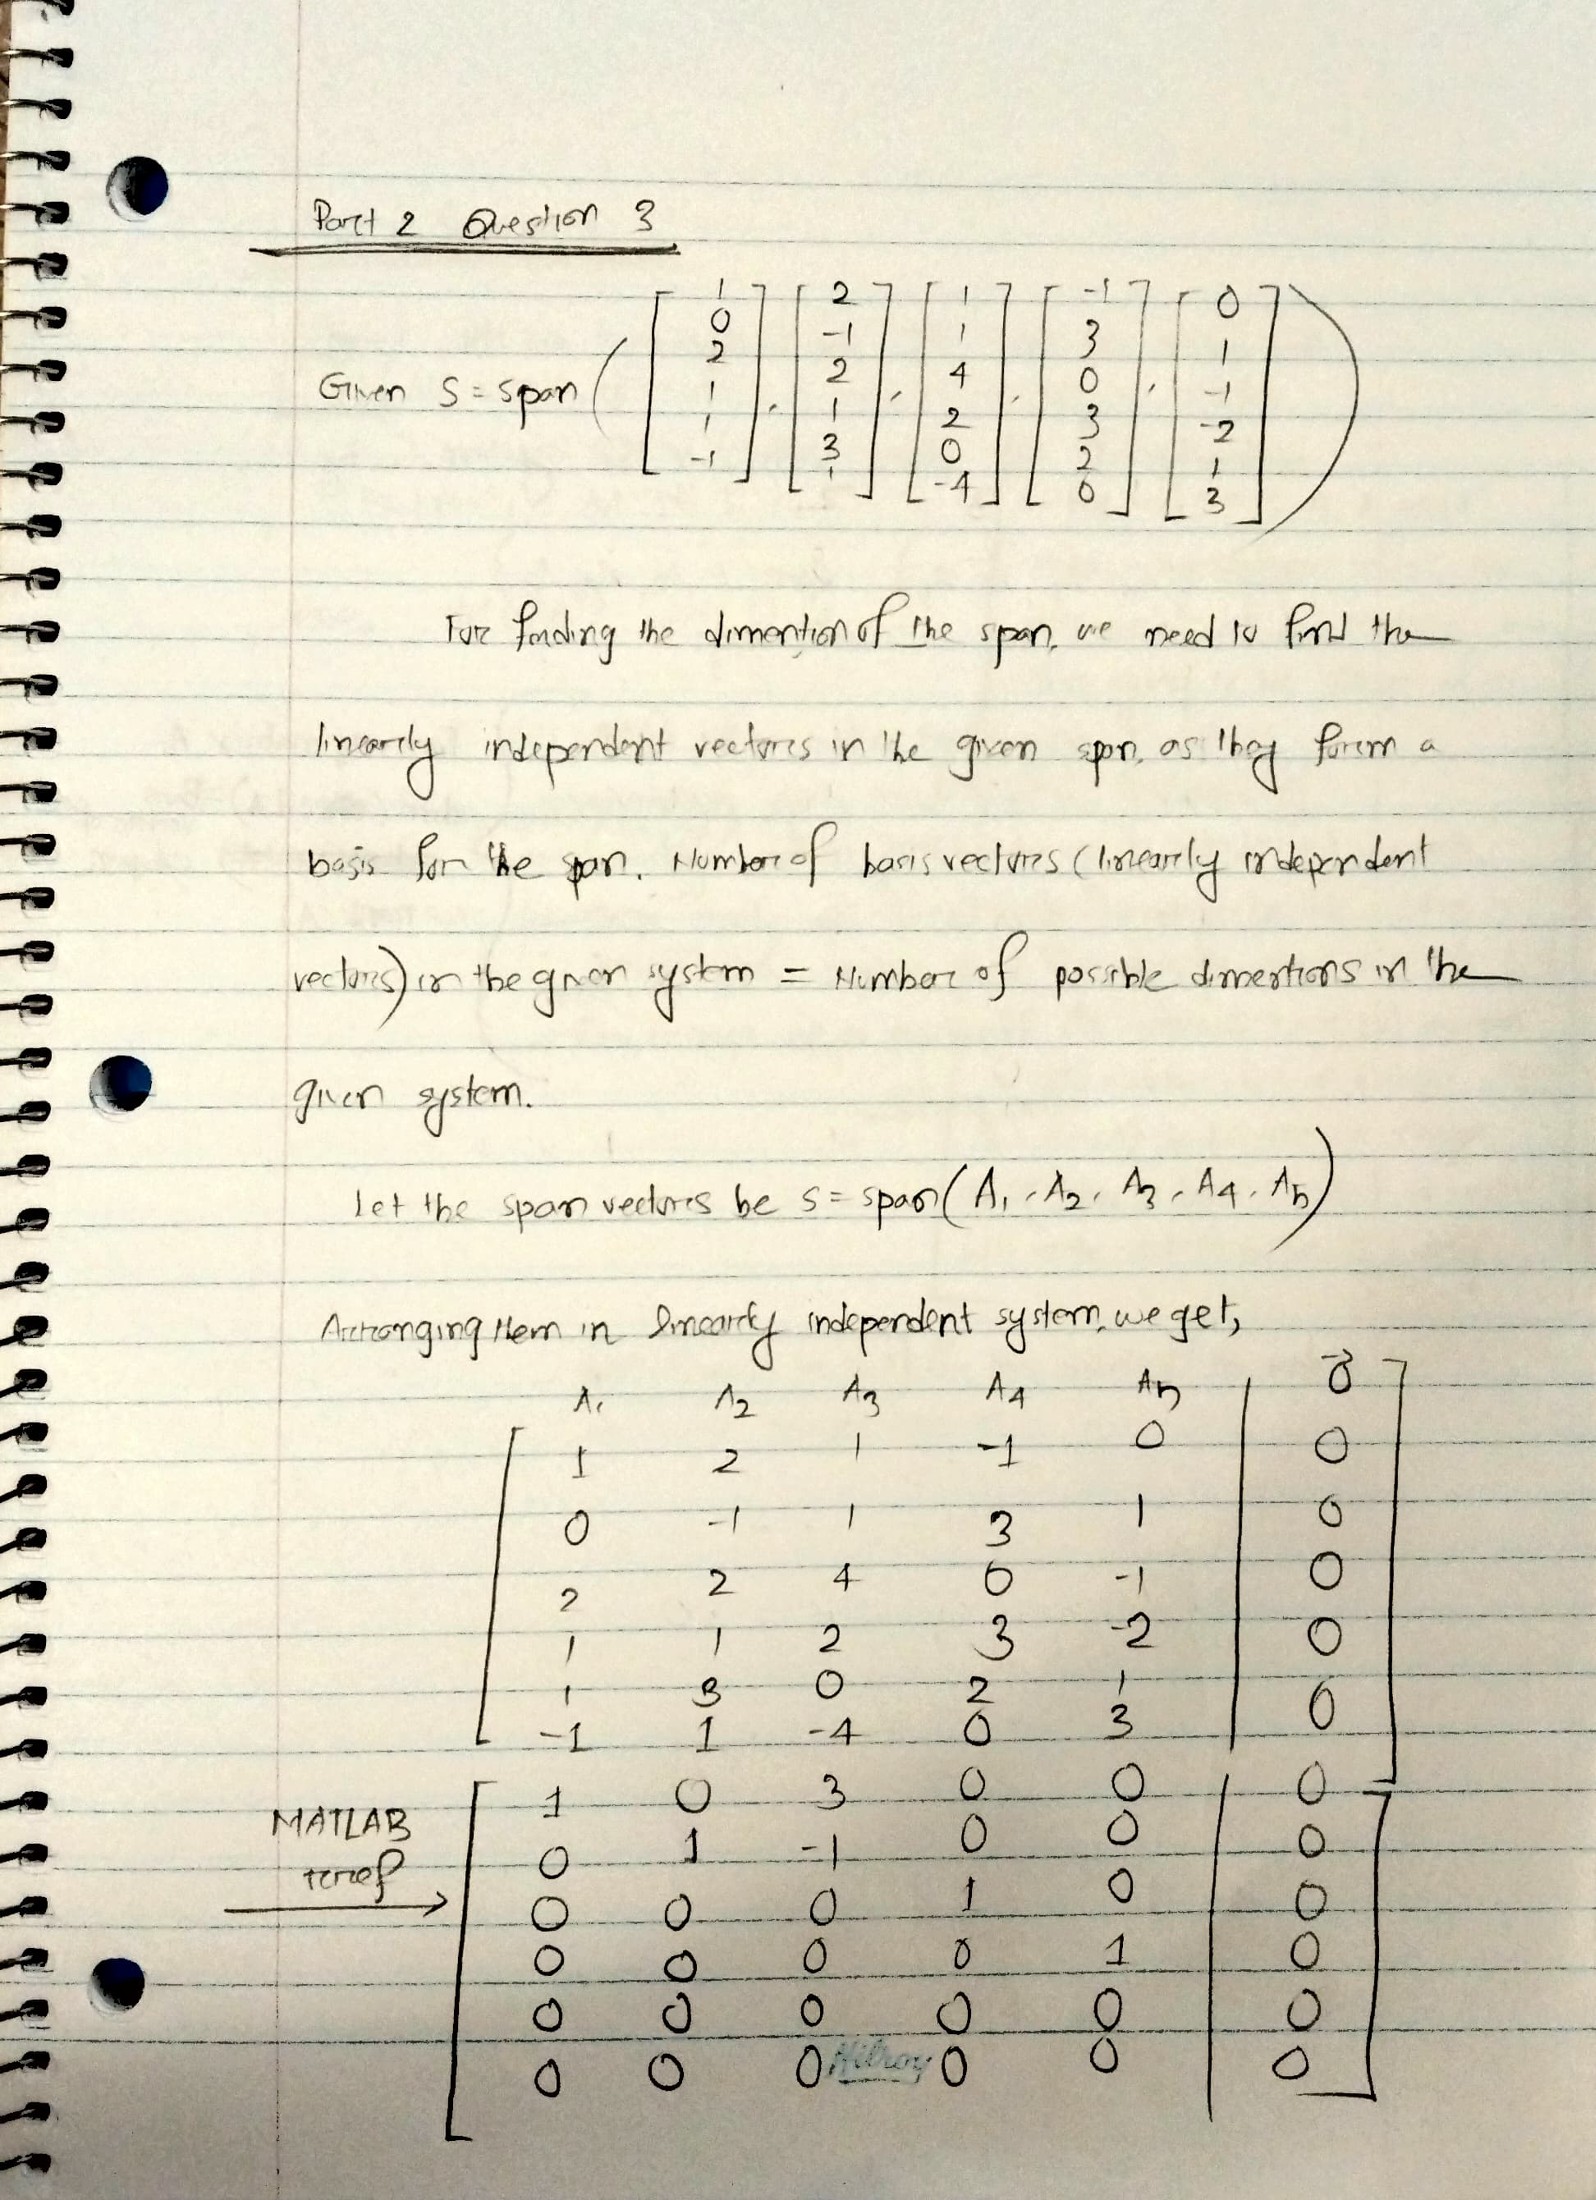 Part 2 Question 3
Given S = span ( [ 1 0 2 1 1 -1 ] , [ 2 -1 2 1 3 1 ] , [ 1 1 4 2 0 -4 ] , [ -1 3 0 3 2 0 ] , [ 0 1 -1 -2 1 3 ] )
For finding the dimention of the span, we need to find the
linearly independent vectors in the given span, as they form a
basis for the span. Number of basis vectors (linearly independent
vectors) in the given system = Number of possible dimentions in the
given system.
Let the span vectors be S = span ( A1, A2, A3, A4, A5 )
Arranging them in linearly independent system, we get,
A1 A2 A3 A4 A5 0⃗
1 2 1 -1 0 0
0 -1 1 3 1 0
2 2 4 0 -1 0
1 1 2 3 -2 0
1 3 0 2 1 0
-1 1 -4 0 3
MATLAB
rref
→
1 0 3 0 0 0
0 1 -1 0 0 0
0 0 0 1 0 0
0 0 0 0 1 0
0 0 0 0 0 0
0 0 0 0 0 0
Hilroy